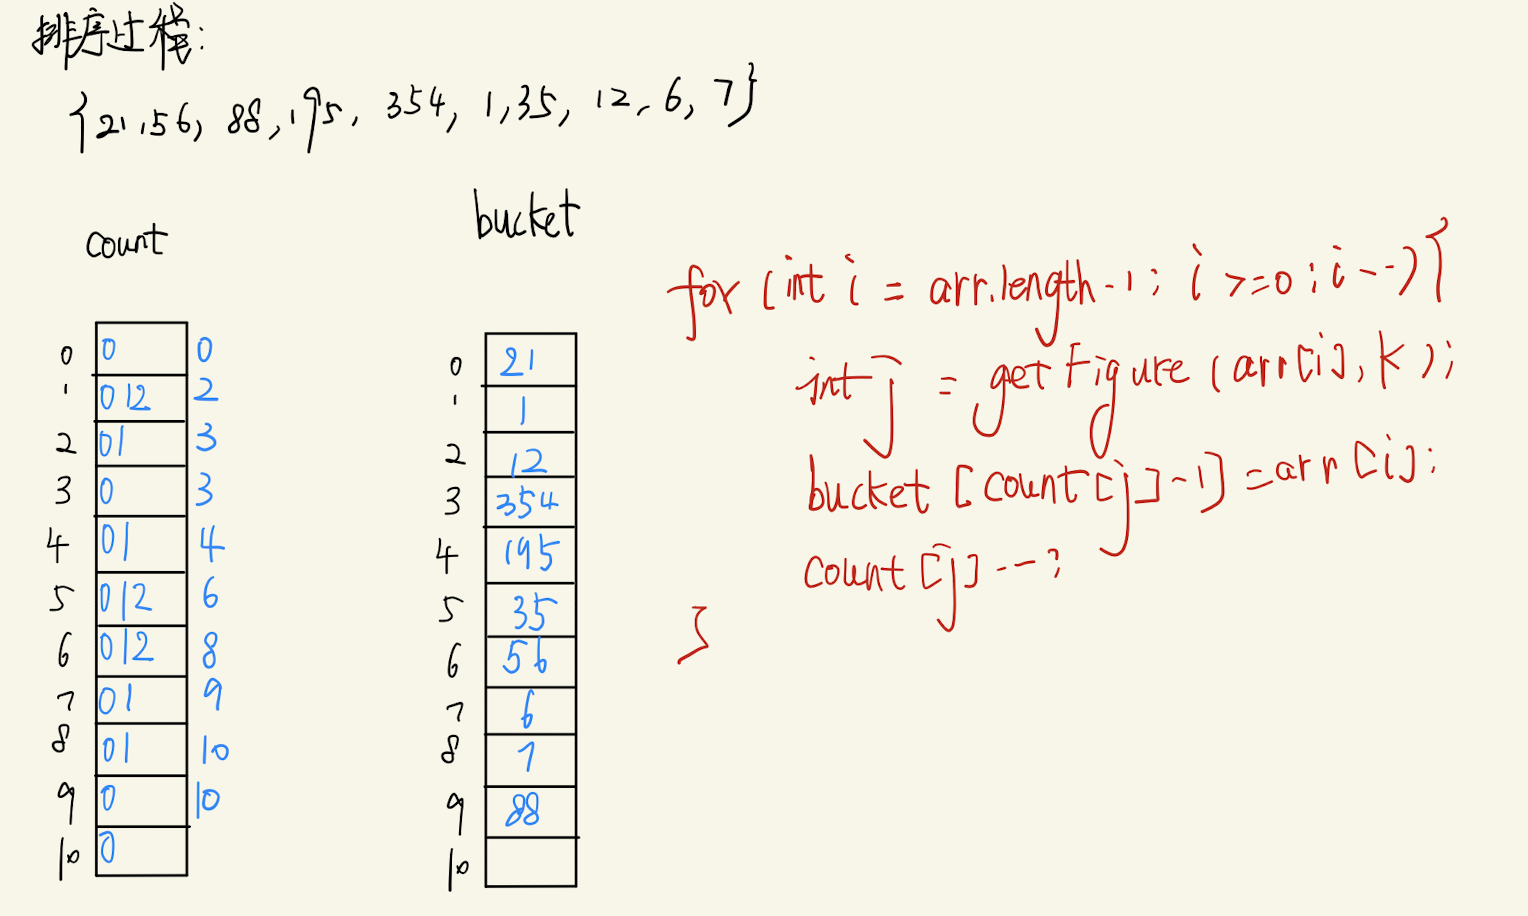 排序过程:
{21,56, 88,195, 354, 1,35, 12, 6, 7}
count
0 0 0
1 012 2
2 01 3
3 0 3
4 01 4
5 012 6
6 012 8
7 01 9
8 01 10
9 0 10
10 0
bucket
0 21
1 1
2 12
3 354
4 195
5 35
6 56
7 6
8 7
9 88
10
for (int i = arr.length-1; i >=0; i--){
int j = getFigure (arr[i], k);
bucket [count[j]-1] = arr[i];
count[j]--;
}